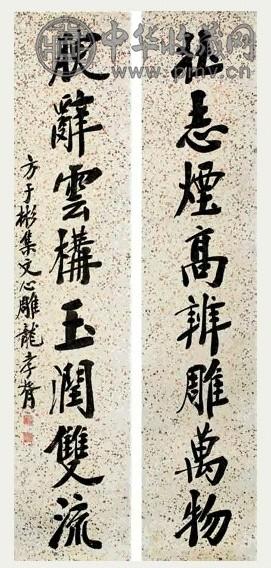 煙高辨雕萬物
腴辭雲構玉潤雙流
方于彬集文心雕龍孝胥
中华收藏网